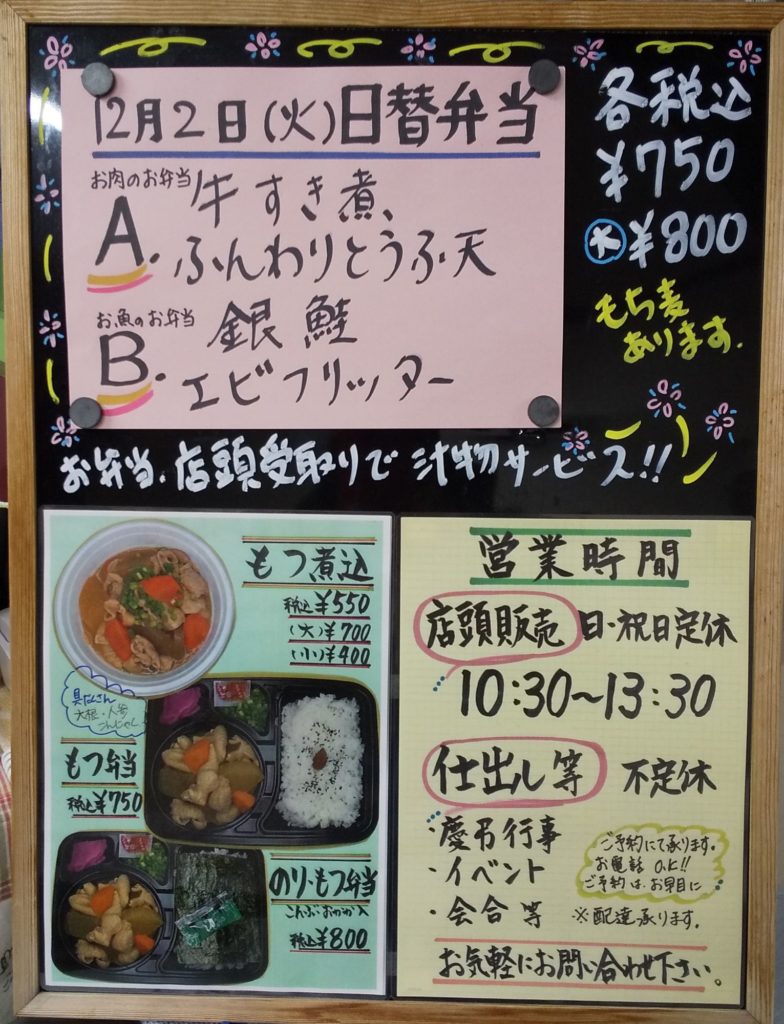 12月2日(火)日替弁当
お肉のお弁当
A. 牛すき煮、
ふんわりとうふ天
お魚のお弁当
B. 銀鮭
エビフリッター
各税込
¥750
大 ¥800
もち麦
あります.
お弁当、店頭受取りで 汁物サービス!!
もつ煮込
税込¥550
(大)¥700
(小)¥400
具だくさん
大根・人参
こんにゃく
もつ弁当
税込¥750
のり・もつ弁当
こんぶ・おかか入
税込¥800
営業時間
店頭販売 日・祝日定休
10:30~13:30
仕出し等 不定休
・慶弔行事
・イベント
・会合等
ご予約にて承ります。
お電話 O.K!!
ご予約は、お早目に
※配達承ります。
お気軽にお問い合わせ下さい。